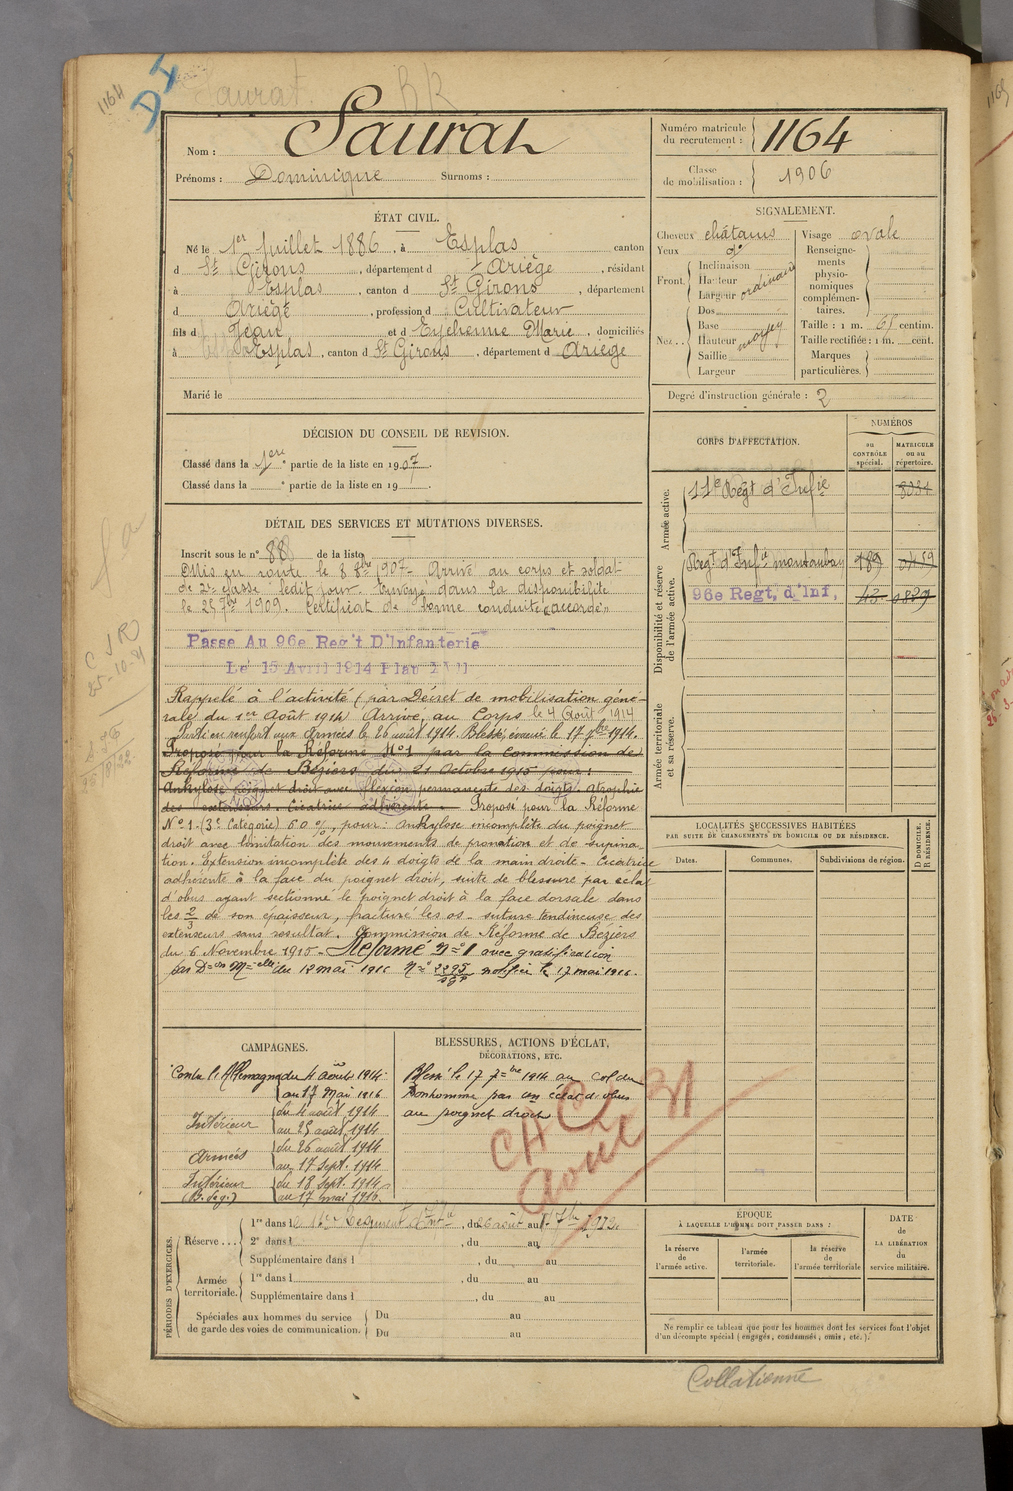 1164
Saurat
Nom : Saurat
Prénoms : Dominique Surnoms :
Numéro matricule du recrutement : 1164
Classe de mobilisation : 1906
ÉTAT CIVIL.
Né le 1er Juillet 1886, à Esplas canton
d St Girons, département d Ariège, résidant
à Esplas, canton d St Girons, département
d Ariège, profession d Cultivateur
fils d Jean et d Eychenne Marie, domiciliés
à Esplas, canton d St Girons, département d Ariège
Marié le
SIGNALEMENT.
Cheveux châtains Visage ovale
Yeux do
Front Inclinaison Hauteur Largeur ordinaire
Nez Dos Base Hauteur Saillie Largeur moyen
Renseignements physionomiques complémentaires.
Taille : 1 m. 65 centim.
Taille rectifiée : 1 m. cent.
Marques particulières.
Degré d'instruction générale : 2
DÉCISION DU CONSEIL DE REVISION.
Classé dans la 1ère partie de la liste en 1907.
Classé dans la e partie de la liste en 19
DÉTAIL DES SERVICES ET MUTATIONS DIVERSES.
Inscrit sous le n° 88 de la liste
Mis en route le 8 8bre 1907 – Arrivé au corps et soldat
de 2e classe ledit jour. Envoyé dans la disponibilité
le 25 7bre 1909. Certificat de bonne conduite "accordé"
Passe Au 96e Reg't D'Infanterie
Le 15 Avril 1914 Plan
Rappelé à l'activité (par Décret de mobilisation géné-
rale du 1er Août 1914) Arrivé, au Corps le 4 Août 1914
Parti en renfort aux Armées le 26 août 1914. Blessé, évacué le 17 7bre 1914.
Proposé pour la Réforme N°1 par la Commission de
Réforme de Béziers du 21 Octobre 1915 pour :
Ankylose poignet droit avec flexion permanente des doigts. atrophie
des extenseurs. Cicatrice adhérente. Proposé pour la Réforme
N° 1 - (3e Catégorie) 60 %, pour : Ankylose incomplète du poignet
droit avec limitation des mouvements de pronation et de supina-
tion. Extension incomplète des 4 doigts de la main droite - Cicatrice
adhérente à la face du poignet droit, suite de blessure par éclat
d'obus ayant sectionné le poignet droit à la face dorsale dans
les 2/3 de son epaisseur, fracturé les os - suture tendineuse des
extenseurs sans resultat. Commission de Réforme de Beziers
du 6 Novembre 1915 - Réformé N° 1 avec gratification
par Don Melle du 12 mai 1916 N° 2295 notifiée le 17 mai 1916.
CORPS D'AFFECTATION.
NUMÉROS
au CONTRÔLE spécial.
MATRICULE ou au répertoire.
Armée active.
11e Régt d'Infie
Disponibilité et réserve de l'armée active.
Regt d'Infie montauban 189
96e Regt, d'Inf, 43
Armée territoriale et sa réserve.
LOCALITÉS SUCCESSIVES HABITÉES
PAR SUITE DE CHANGEMENTS DE DOMICILE OU DE RÉSIDENCE.
Dates. Communes. Subdivisions de région.
D DOMICILE. R RÉSIDENCE.
CAMPAGNES.
Contre l'Allemagne du 4 août 1914
au 17 Mai 1916
Intérieur du 4 août 1914
au 25 août 1914
Armées du 26 août 1914
au 17 Sept. 1914
Intérieur du 18 Sept. 1914
au 17 mai 1916.
BLESSURES, ACTIONS D'ÉCLAT,
DÉCORATIONS, ETC.
Blessé le 17 7bre 1914 au Col du
Bonhomme par un éclat d'obus
au poignet droit
Aout 31
PÉRIODES D'EXERCICES.
Réserve 1re dans l Régiment d'Infie, du 26 août au 7bre 1912.
2e dans l , du au
Supplémentaire dans l , du au
Armée territoriale. 1re dans l , du au
Supplémentaire dans l , du au
Spéciales aux hommes du service de garde des voies de communication. Du au
Du au
ÉPOQUE
À LAQUELLE L'HOMME DOIT PASSER DANS :
la réserve de l'armée active.
l'armée territoriale.
la réserve de l'armée territoriale
DATE de LA LIBÉRATION du service militaire.
Ne remplir ce tableau que pour les hommes dont les services font l'objet
d'un décompte spécial (engagés, condamnés, omis, etc.).
Collationné